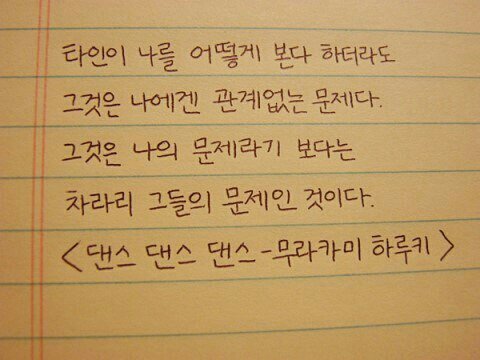 타인이 나를 어떻게 본다 하더라도
그것은 나에겐 관계없는 문제다.
그것은 나의 문제라기 보다는
차라리 그들의 문제인 것이다.
<댄스 댄스 댄스-무라카미 하루키>